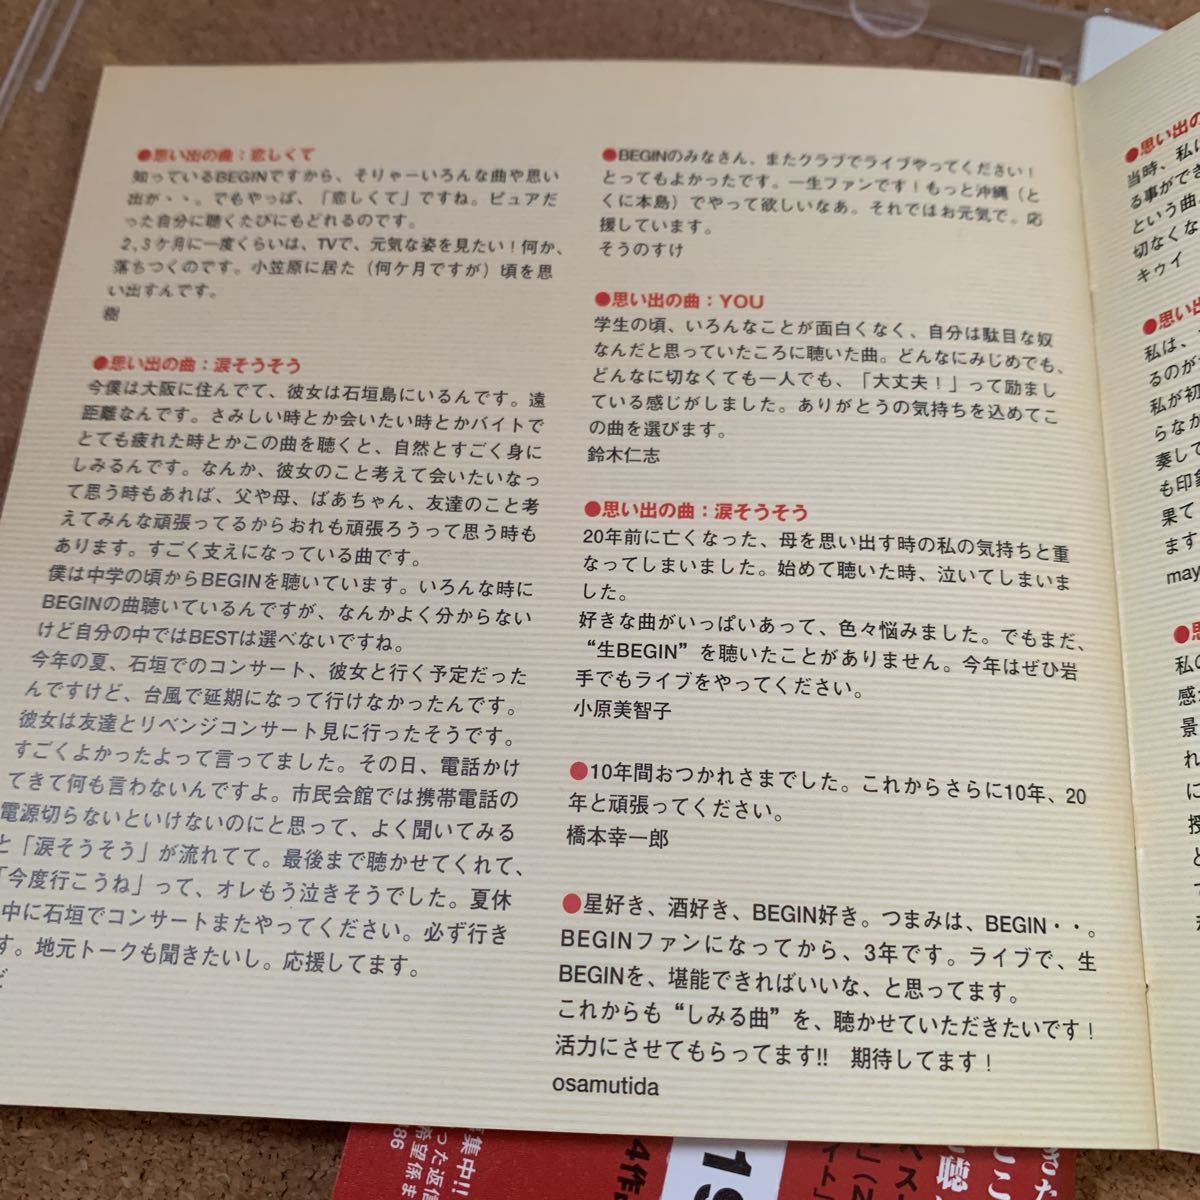 ●思い出の曲：恋しくて
知っているBEGINですから、そりゃーいろんな曲や思い
出が・・。でもやっぱ、「恋しくて」ですね。ピュアだ
った自分に聴くたびにもどれるのです。
2,3ケ月に一度くらいは、TVで、元気な姿を見たい！何か、
落ちつくのです。小笠原に居た（何ケ月ですが）頃を思
い出すんです。
樹
●思い出の曲：涙そうそう
今僕は大阪に住んでて、彼女は石垣島にいるんです。遠
距離なんです。さみしい時とか会いたい時とかバイトで
とても疲れた時とかこの曲を聴くと、自然とすごく身に
しみるんです。なんか、彼女のこと考えて会いたいなっ
て思う時もあれば、父や母、ばあちゃん、友達のこと考
えてみんな頑張ってるからおれも頑張ろうって思う時も
あります。すごく支えになっている曲です。
僕は中学の頃からBEGINを聴いています。いろんな時に
BEGINの曲聴いているんですが、なんかよく分からない
けど自分の中ではBESTは選べないですね。
今年の夏、石垣でのコンサート、彼女と行く予定だった
んですけど、台風で延期になって行けなかったんです。
彼女は友達とリベンジコンサート見に行ったそうです。
すごくよかったよって言ってました。その日、電話かけ
てきて何も言わないんですよ。市民会館では携帯電話の
電源切らないといけないのにと思って、よく聞いてみる
と「涙そうそう」が流れてて。最後まで聴かせてくれて、
「今度行こうね」って、オレもう泣きそうでした。夏休
中に石垣でコンサートまたやってください。必ず行き
す。地元トークも聞きたいし。応援してます。
●BEGINのみなさん、またクラブでライブやってください！
とってもよかったです。一生ファンです！もっと沖縄（と
くに本島）でやって欲しいなあ。それではお元気で。応
援しています。
そうのすけ
●思い出の曲：YOU
学生の頃、いろんなことが面白くなく、自分は駄目な奴
なんだと思っていたころに聴いた曲。どんなにみじめでも、
どんなに切なくても一人でも、「大丈夫！」って励まし
ている感じがしました。ありがとうの気持ちを込めてこ
の曲を選びます。
鈴木仁志
●思い出の曲：涙そうそう
20年前に亡くなった、母を思い出す時の私の気持ちと重
なってしまいました。始めて聴いた時、泣いてしまいま
した。
好きな曲がいっぱいあって、色々悩みました。でもまだ、
“生BEGIN”を聴いたことがありません。今年はぜひ岩
手でもライブをやってください。
小原美智子
●10年間おつかれさまでした。これからさらに10年、20
年と頑張ってください。
橋本幸一郎
●星好き、酒好き、BEGIN好き。つまみは、BEGIN・・。
BEGINファンになってから、3年です。ライブで、生
BEGINを、堪能できればいいな、と思ってます。
これからも“しみる曲”を、聴かせていただきたいです！
活力にさせてもらってます!!　期待してます！
osamutida
●思い出の
当時、私は
る事ができ
という曲。
切なくな
キゥイ
●思い出
私は、
るのが
私が初
らなか
奏して
も印象
果て
ます
may
●思
私の
感
景
れ
に
授
と
集中!!
った返信
希望係ま
86
4作
19